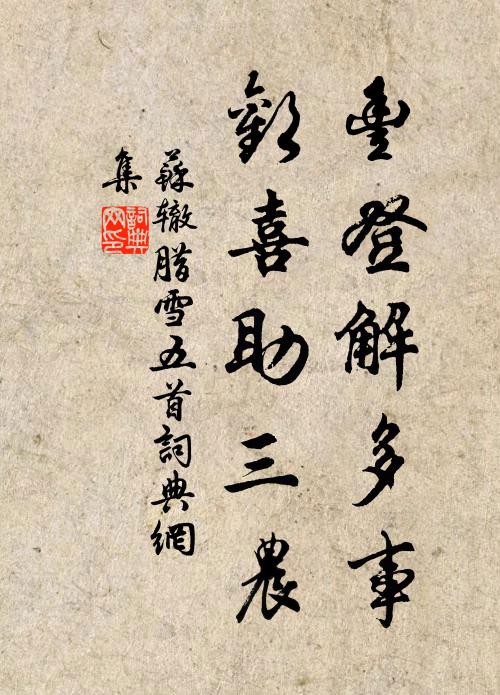 豐登解多事
歡喜助三農
蘇辙腊雪五首詞典網
集
詞典
网印